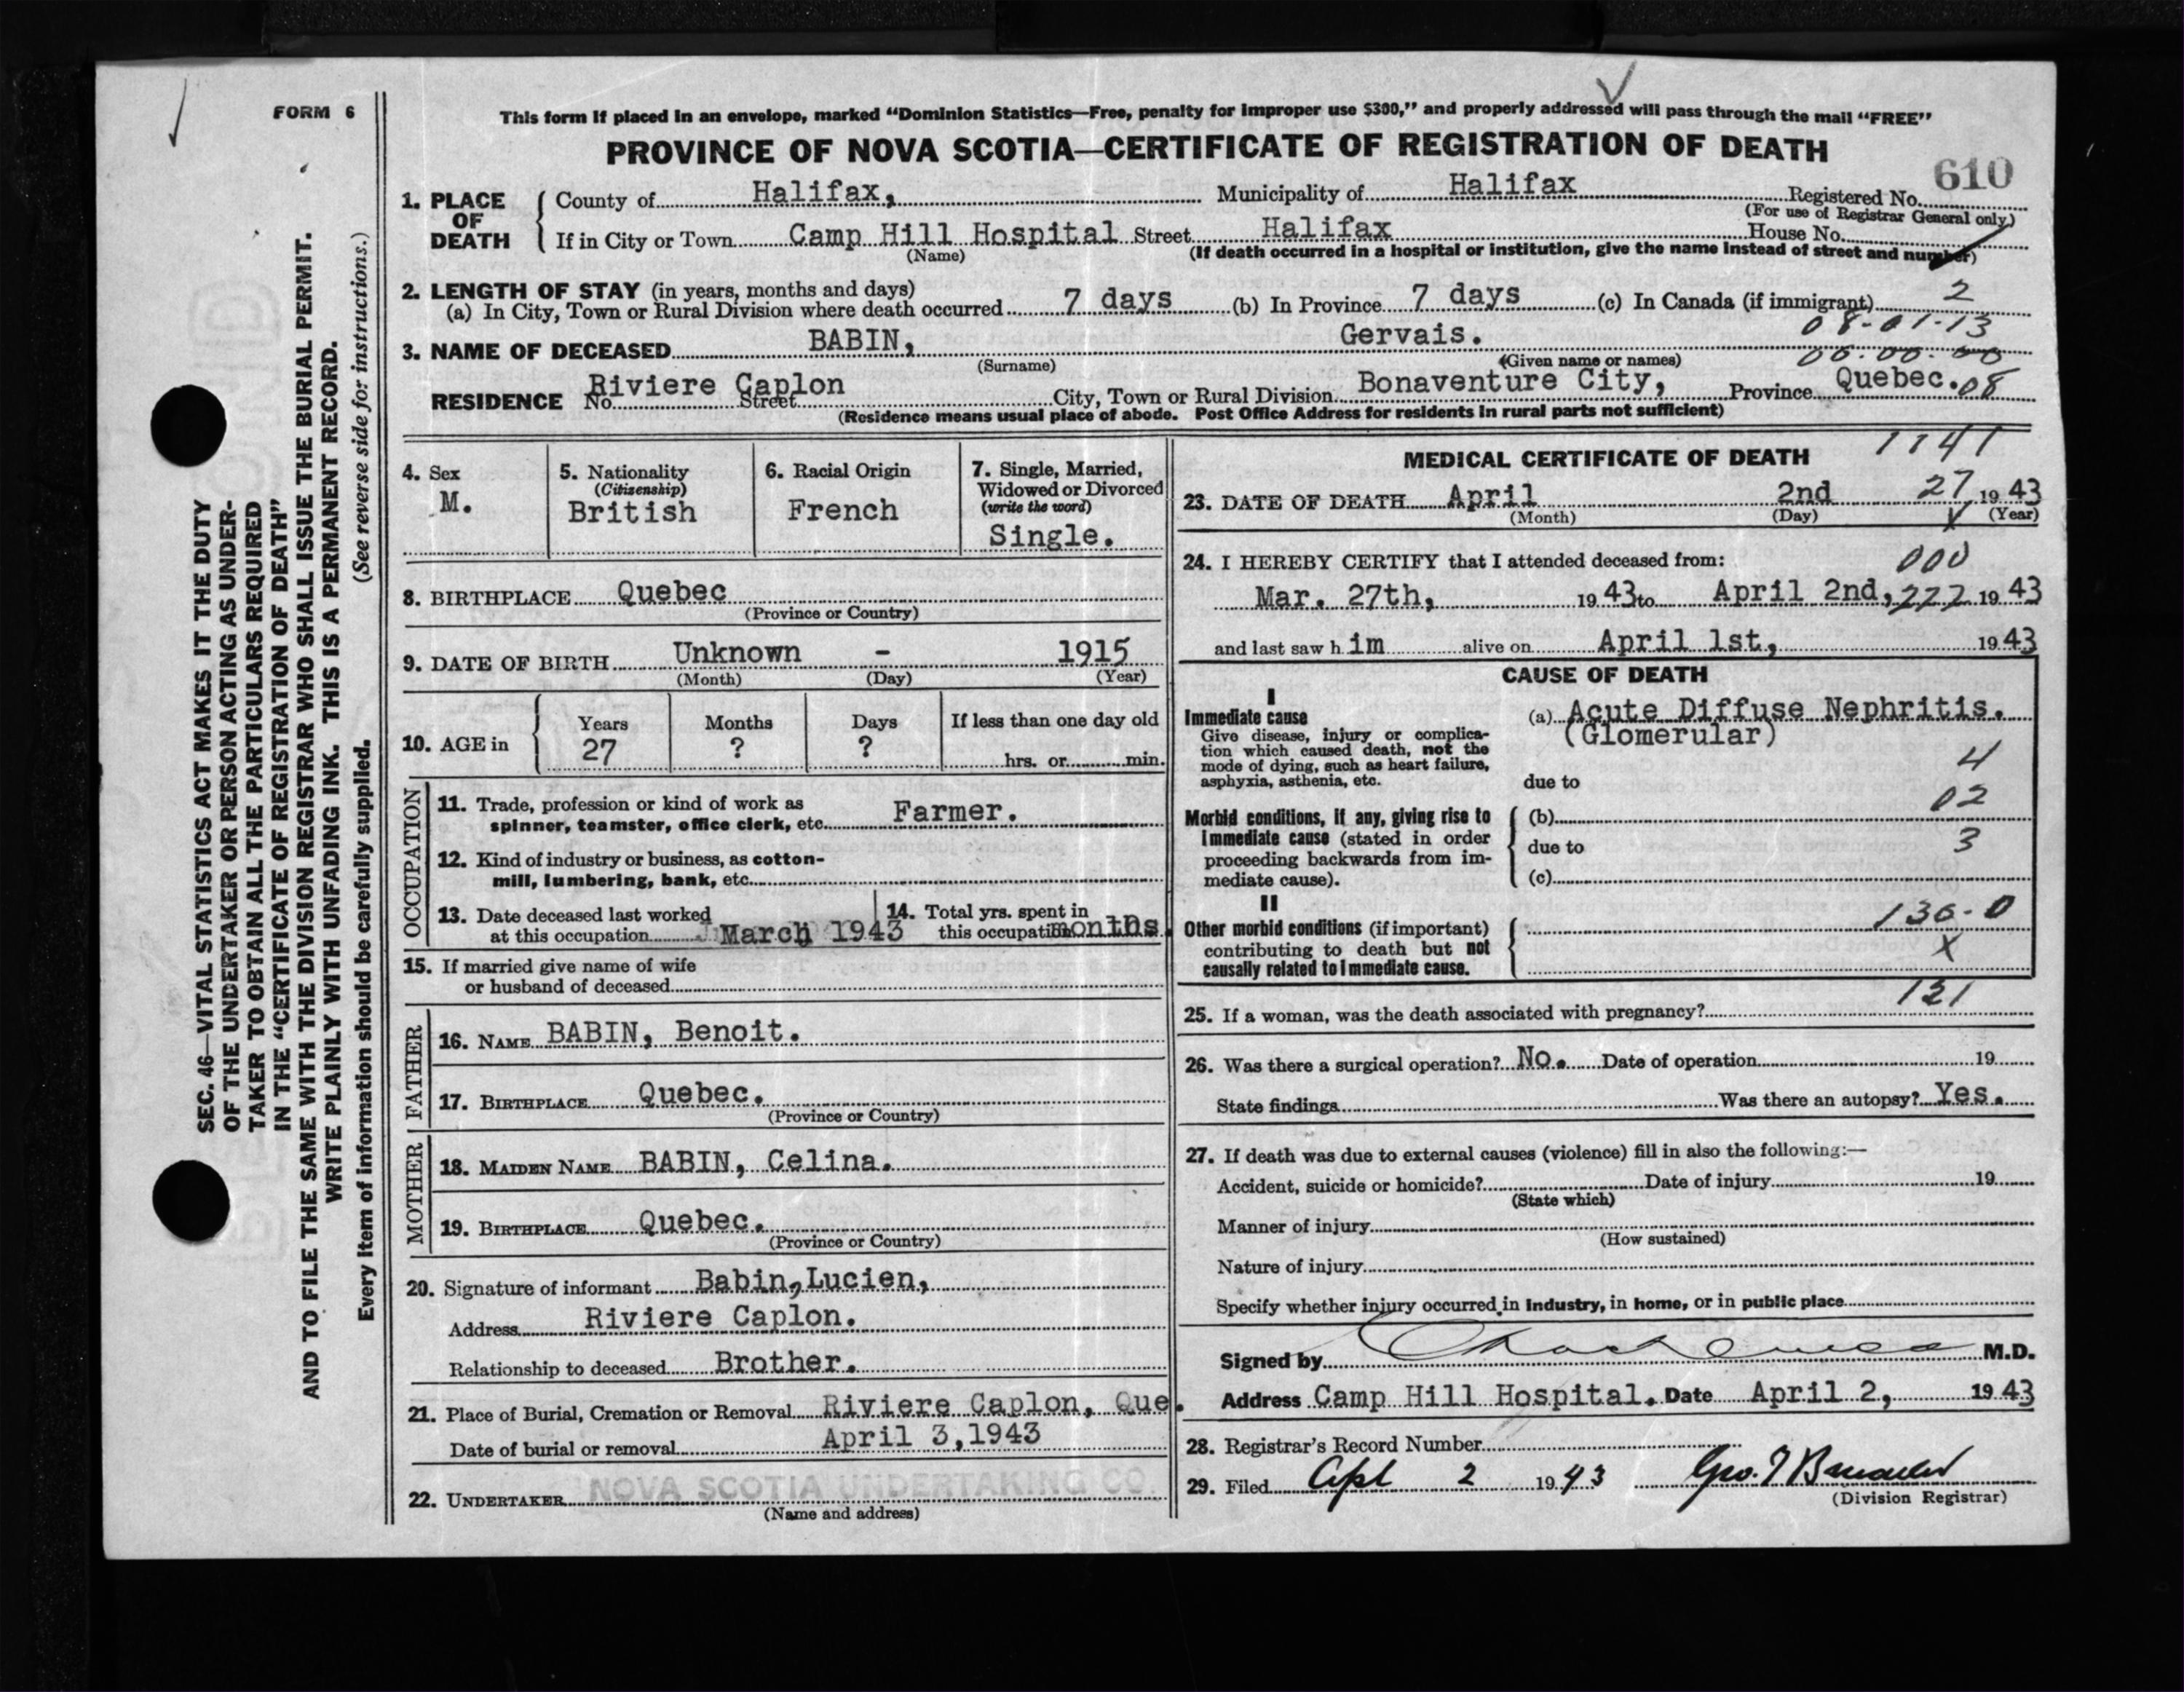 FORM 6
This form if placed in an envelope, marked "Dominion Statistics—Free, penalty for improper use $300," and properly addressed will pass through the mail "FREE"
PROVINCE OF NOVA SCOTIA—CERTIFICATE OF REGISTRATION OF DEATH
610
SEC. 46—VITAL STATISTICS ACT MAKES IT THE DUTY
OF THE UNDERTAKER OR PERSON ACTING AS UNDER-
TAKER TO OBTAIN ALL THE PARTICULARS REQUIRED
IN THE "CERTIFICATE OF REGISTRATION OF DEATH"
AND TO FILE THE SAME WITH THE DIVISION REGISTRAR WHO SHALL ISSUE THE BURIAL PERMIT.
WRITE PLAINLY WITH UNFADING INK. THIS IS A PERMANENT RECORD.
Every item of information should be carefully supplied. (See reverse side for instructions.)
1. PLACE OF DEATH
County of Halifax, Municipality of Halifax Registered No.
(For use of Registrar General only)
If in City or Town Camp Hill Hospital Street Halifax House No.
(Name) (If death occurred in a hospital or institution, give the name instead of street and number)
2. LENGTH OF STAY (in years, months and days)
(a) In City, Town or Rural Division where death occurred 7 days (b) In Province 7 days (c) In Canada (if immigrant) 2
08-01-13
3. NAME OF DECEASED BABIN, Gervais.
(Surname) (Given name or names) 00.00.00
RESIDENCE Riviere Caplon No. Street City, Town or Rural Division Bonaventure City, Province Quebec. 08
(Residence means usual place of abode. Post Office Address for residents in rural parts not sufficient)
4. Sex
M.
5. Nationality
(Citizenship)
British
6. Racial Origin
French
7. Single, Married,
Widowed or Divorced
(write the word)
Single.
8. BIRTHPLACE Quebec
(Province or Country)
9. DATE OF BIRTH Unknown - 1915
(Month) (Day) (Year)
10. AGE in
Years Months Days If less than one day old
27 ? ? hrs. or min.
OCCUPATION
11. Trade, profession or kind of work as
spinner, teamster, office clerk, etc. Farmer.
12. Kind of industry or business, as cotton-
mill, lumbering, bank, etc.
13. Date deceased last worked
at this occupation March 1943
14. Total yrs. spent in
this occupation months.
15. If married give name of wife
or husband of deceased
FATHER
16. NAME BABIN, Benoit.
17. BIRTHPLACE Quebec.
(Province or Country)
MOTHER
18. MAIDEN NAME BABIN, Celina.
19. BIRTHPLACE Quebec.
(Province or Country)
20. Signature of informant Babin, Lucien,
Address Riviere Caplon.
Relationship to deceased Brother.
21. Place of Burial, Cremation or Removal Riviere Caplon, Que.
Date of burial or removal April 3, 1943
22. UNDERTAKER NOVA SCOTIA UNDERTAKING CO.
(Name and address)
MEDICAL CERTIFICATE OF DEATH 1141
23. DATE OF DEATH April 2nd 27 1943
(Month) (Day) (Year)
24. I HEREBY CERTIFY that I attended deceased from: 000
Mar. 27th, 1943 to April 2nd, 222 1943
and last saw him alive on April 1st, 1943
CAUSE OF DEATH
I
Immediate cause
Give disease, injury or complica-
tion which caused death, not the
mode of dying, such as heart failure,
asphyxia, asthenia, etc.
(a) Acute Diffuse Nephritis.
(Glomerular)
4
due to
02
Morbid conditions, if any, giving rise to
immediate cause (stated in order
proceeding backwards from im-
mediate cause).
(b)
due to 3
(c)
II
Other morbid conditions (if important)
contributing to death but not
causally related to immediate cause.
130-0
X
131
25. If a woman, was the death associated with pregnancy?
26. Was there a surgical operation? No. Date of operation 19
State findings Was there an autopsy? Yes.
27. If death was due to external causes (violence) fill in also the following:—
Accident, suicide or homicide? Date of injury 19
(State which)
Manner of injury
(How sustained)
Nature of injury
Specify whether injury occurred in industry, in home, or in public place
Signed by M.D.
Address Camp Hill Hospital. Date April 2, 1943
28. Registrar's Record Number
29. Filed Apl 2 1943 Geo.
(Division Registrar)